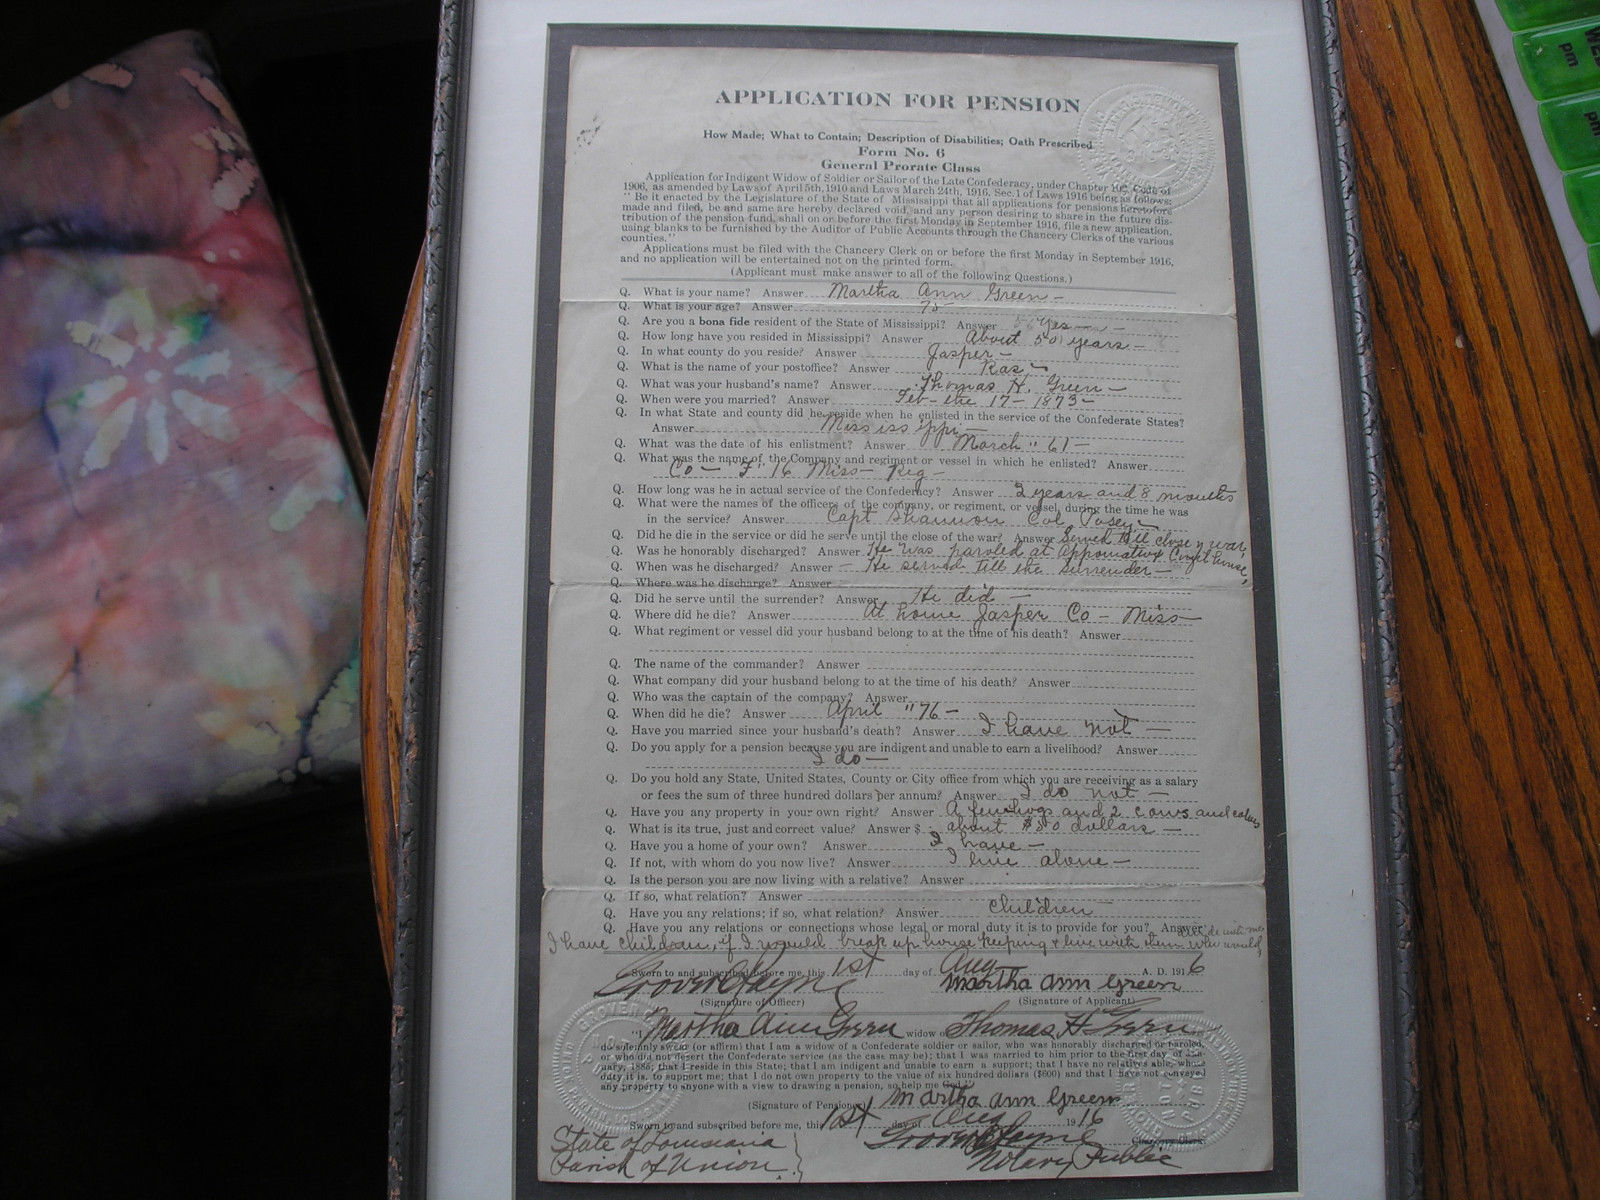 APPLICATION FOR PENSION
How Made; What to Contain; Description of Disabilities; Oath Prescribed
Form No. 6
General Prorate Class
Application for Indigent Widow of Soldier or Sailor of the Late Confederacy, under Chapter 102 Code of
1906, as amended by Laws of April 5th, 1910 and Laws March 24th, 1916, Sec. 1 of Laws 1916 being as follows:
"Be it enacted by the Legislature of the State of Mississippi that all applications for pensions heretofore
made and filed, be and same are hereby declared void, and any person desiring to share in the future dis-
tribution of the pension fund, shall on or before the first Monday in September 1916, file a new application,
using blanks to be furnished by the Auditor of Public Accounts through the Chancery Clerks of the various
counties."
Applications must be filed with the Chancery Clerk on or before the first Monday in September 1916,
and no application will be entertained not on the printed form.
(Applicant must make answer to all of the following Questions.)
Q. What is your name? Answer Martha Ann Green -
Q. What is your age? Answer 75
Q. Are you a bona fide resident of the State of Mississippi? Answer Yes -
Q. How long have you resided in Mississippi? Answer About 50 years -
Q. In what county do you reside? Answer Jasper -
Q. What is the name of your postoffice? Answer
Q. What was your husband's name? Answer Thomas H. Green -
Q. When were you married? Answer Feb - the 17 - 1873 -
Q. In what State and county did he reside when he enlisted in the service of the Confederate States?
Answer Mississippi -
Q. What was the date of his enlistment? Answer March " 61 -
Q. What was the name of the Company and regiment or vessel in which he enlisted? Answer
Co - F" 16 Miss - Reg -
Q. How long was he in actual service of the Confederacy? Answer 2 years and 8 months
Q. What were the names of the officers of the company, or regiment, or vessel, during the time he was
in the service? Answer Capt Shannon Col. Posey -
Q. Did he die in the service or did he serve until the close of the war? Answer Served till close of war
Q. Was he honorably discharged? Answer He was paroled at Appomattox Court house,
Q. When was he discharged? Answer - He served till the Surrender -
Q. Where was he discharge? Answer
Q. Did he serve until the surrender? Answer He did -
Q. Where did he die? Answer At home Jasper Co - Miss -
Q. What regiment or vessel did your husband belong to at the time of his death? Answer
Q. The name of the commander? Answer
Q. What company did your husband belong to at the time of his death? Answer
Q. Who was the captain of the company? Answer
Q. When did he die? Answer April " 76 -
Q. Have you married since your husband's death? Answer I have not -
Q. Do you apply for a pension because you are indigent and unable to earn a livelihood? Answer
I do -
Q. Do you hold any State, United States, County or City office from which you are receiving as a salary
or fees the sum of three hundred dollars per annum? Answer I do not -
Q. Have you any property in your own right? Answer A few hogs and 2 cows and calves
Q. What is its true, just and correct value? Answer $ about $80 dollars -
Q. Have you a home of your own? Answer I have -
Q. If not, with whom do you now live? Answer I live alone -
Q. Is the person you are now living with a relative? Answer
Q. If so, what relation? Answer
Q. Have you any relations; if so, what relation? Answer Children -
Q. Have you any relations or connections whose legal or moral duty it is to provide for you? Answer
I have children, if I would break up house keeping & live with them who would,
Sworn to and subscribed before me, this 1st day of Aug A. D. 1916
Grover C Payne Martha Ann Green
(Signature of Officer) (Signature of Applicant)
"I Martha Ann Green widow of Thomas H Green
do solemnly swear (or affirm) that I am a widow of a Confederate soldier or sailor, who was honorably discharged or paroled,
or who did not desert the Confederate service (as the case may be); that I was married to him prior to the first day of Jan-
uary, 1885; that I reside in this State; that I am indigent and unable to earn a support; that I have no relatives able, whose
duty it is, to support me; that I do not own property to the value of six hundred dollars ($600) and that I have not conveyed
any property to anyone with a view to drawing a pension, so help me God."
(Signature of Pensioner) Martha Ann Green
Sworn to and subscribed before me, this 1st day of Aug 1916
Grover C Payne Chancery Clerk
State of Louisiana
Notary Public
Parish of Union
WE
pm
pm